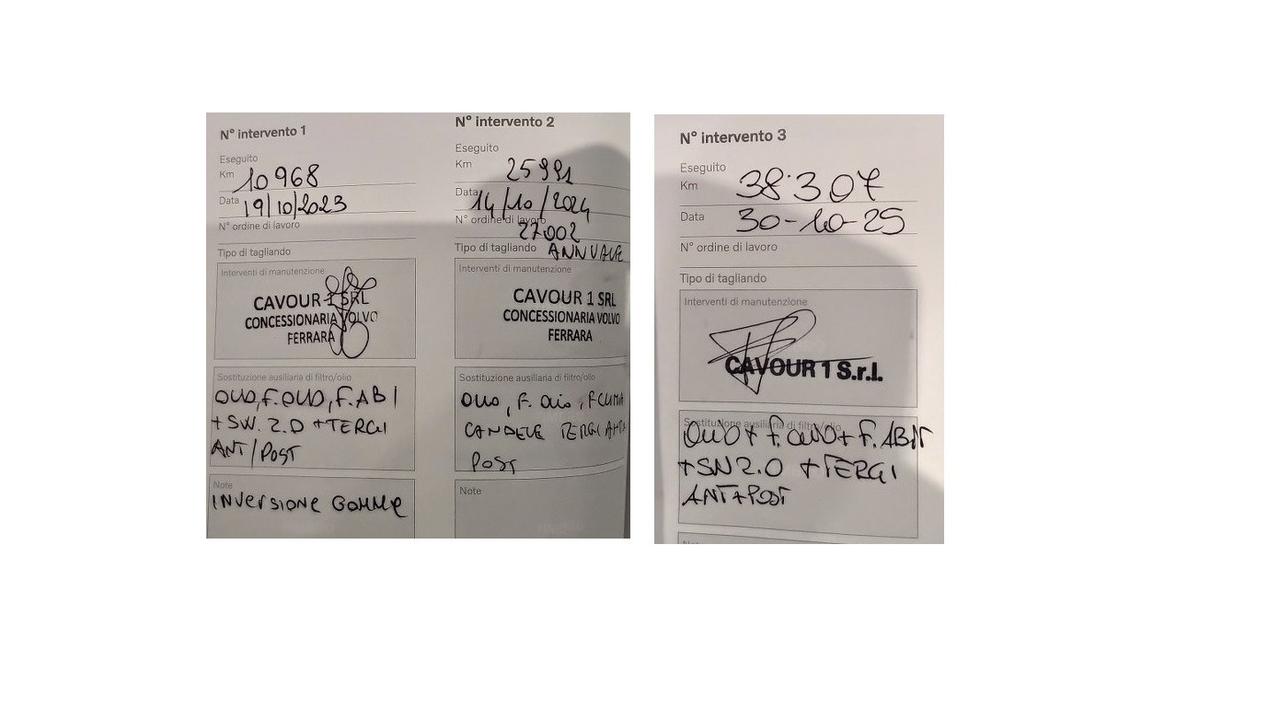 N° intervento 1
Eseguito
Km 10 968
Data 19/10/2023
N° ordine di lavoro
Tipo di tagliando
Interventi di manutenzione
CAVOUR 1 SRL
CONCESSIONARIA VOLVO
FERRARA
Sostituzione ausiliaria di filtro/olio
OLIO, F. OLIO, F. ABI
+ SW. 2.0 + TERGI
ANT/POST
Note
INVERSIONE GOMME
N° intervento 2
Eseguito
Km 25991
Data 14/10/2024
N° ordine di lavoro
27002
Tipo di tagliando ANNUALE
Interventi di manutenzione
CAVOUR 1 SRL
CONCESSIONARIA VOLVO
FERRARA
Sostituzione ausiliaria di filtro/olio
OLIO, F. OLIO, F CLIMA
CANDELE TERGI
POST
Note
N° intervento 3
Eseguito
Km 38.307
Data 30-10-25
N° ordine di lavoro
Tipo di tagliando
Interventi di manutenzione
CAVOUR 1 S.r.l.
Sostituzione ausiliaria di filtro/olio
OLIO + F. OLIO + F. ABIT
+ SW 2.0 + TERGI
ANT + POST